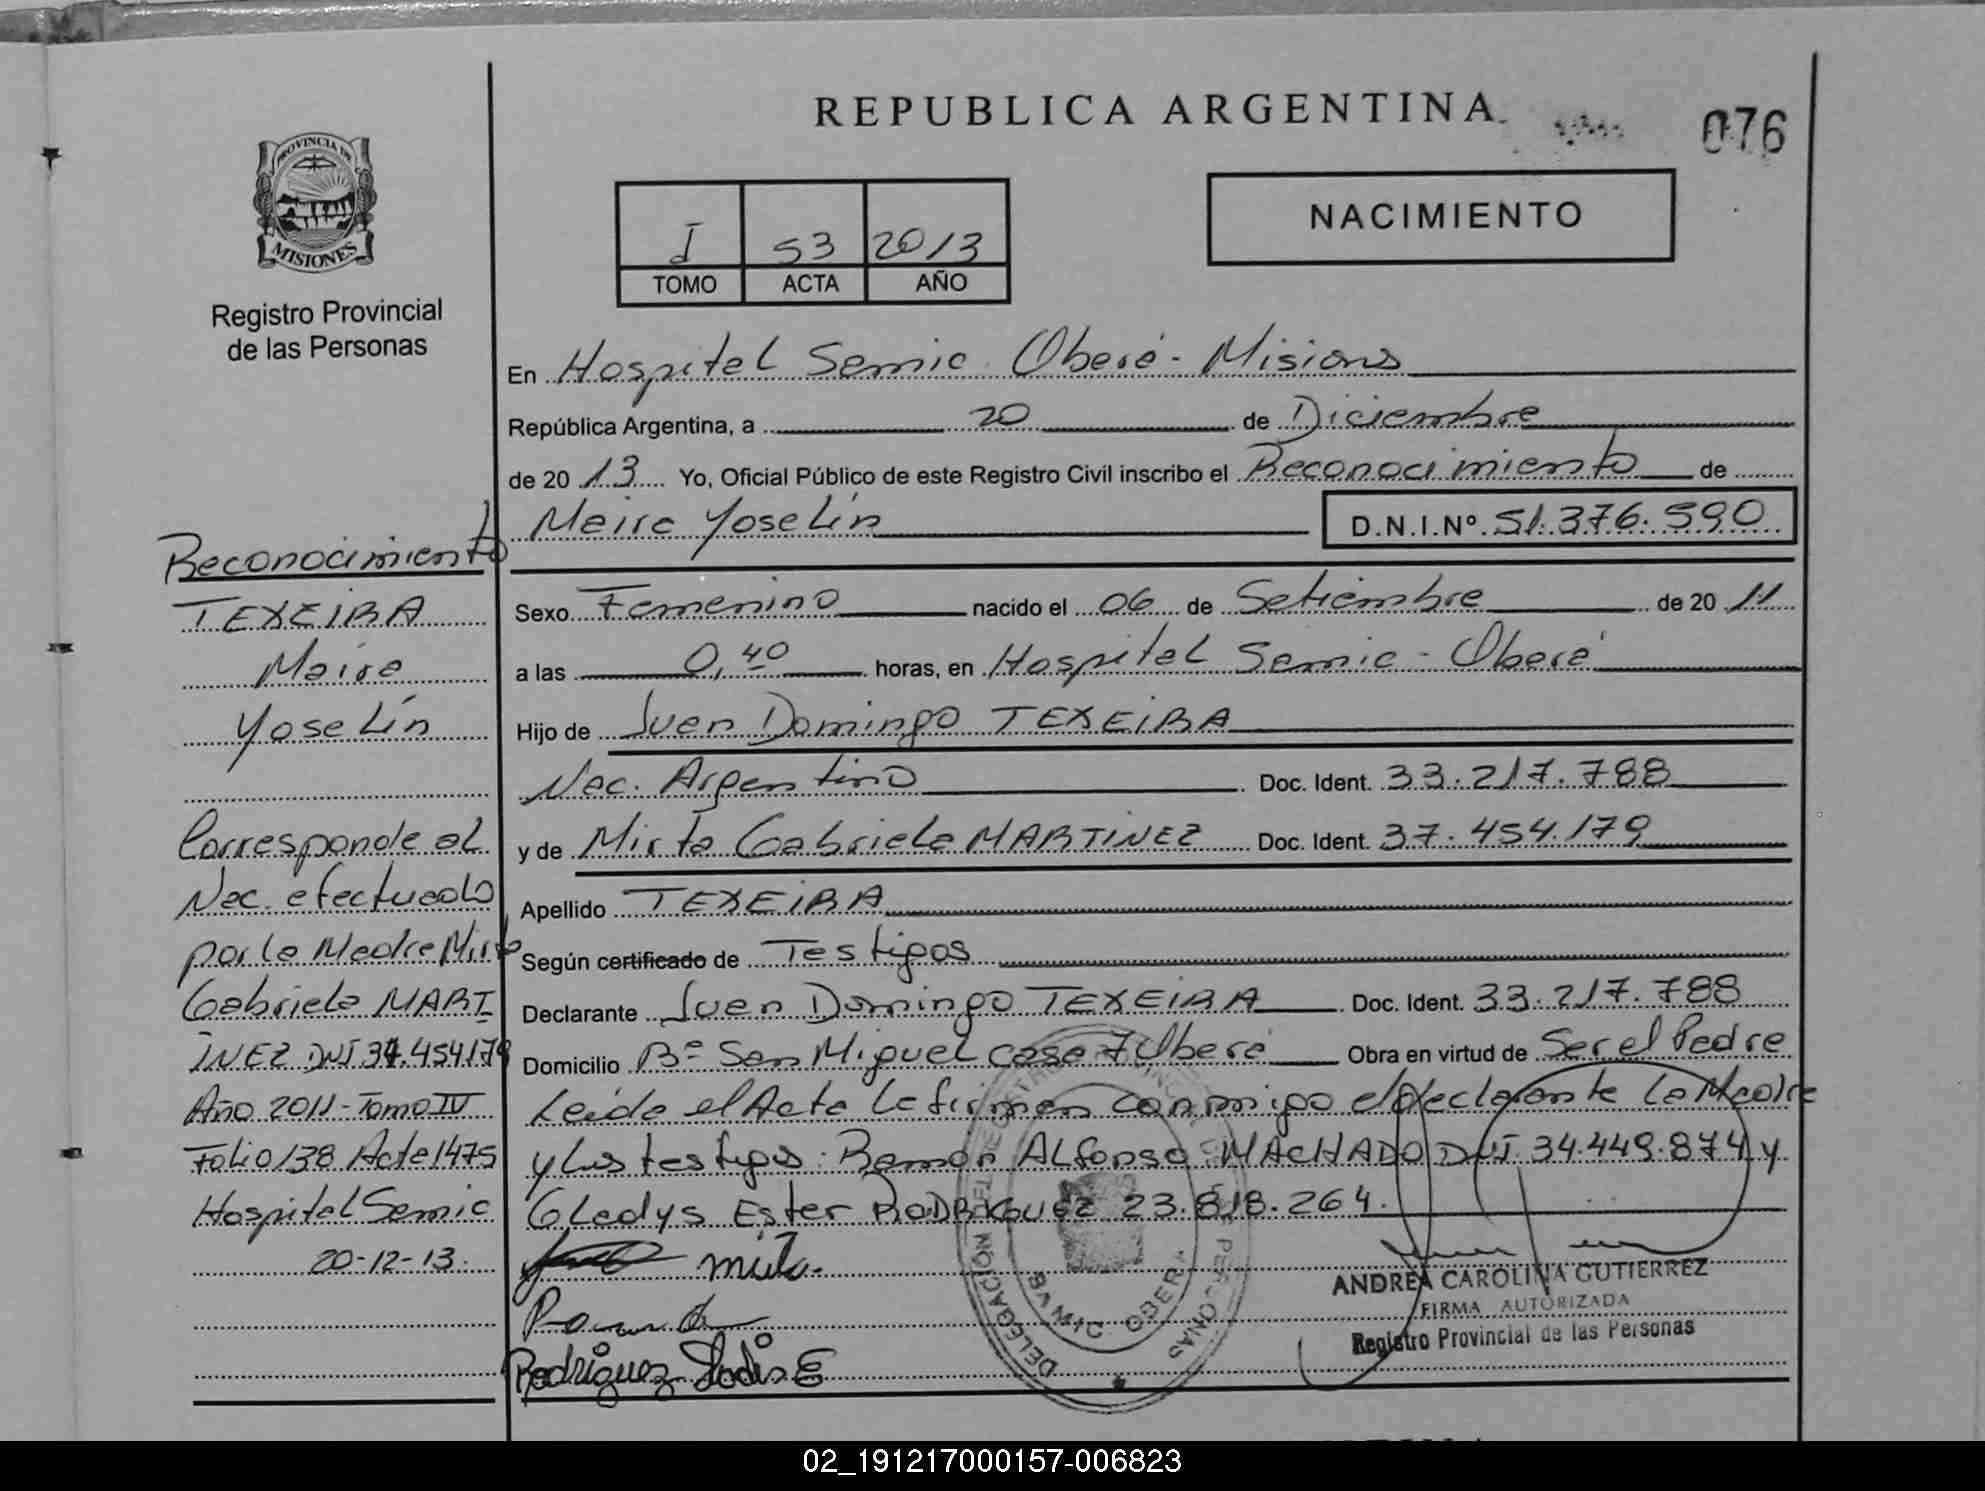 REPUBLICA ARGENTINA
076
PROVINCIA DE
MISIONES
Registro Provincial
de las Personas
I 53 2013
TOMO ACTA AÑO
NACIMIENTO
En Hospital Samic Oberá - Misions
República Argentina, a 20 de Diciembre
de 2013 Yo, Oficial Público de este Registro Civil inscribo el Reconocimiento de
Maira Yoselín D.N.I.Nº 51.376.590
Sexo Femenino nacido el 06 de Setiembre de 2011
a las 0,40 horas, en Hospital Samic - Oberá
Hijo de Juan Domingo TEXEIRA
Nac. Argentino Doc. Ident. 33.217.788
y de Mirta Gabriela MARTINEZ Doc. Ident. 37.454.179
Apellido TEXEIRA
Según certificado de Testigos
Declarante Juan Domingo TEXEIRA Doc. Ident. 33.217.788
Domicilio Bº San Miguel casa 7 Oberá Obra en virtud de Ser el Padre
Leída el Acta la firman conmigo el declarante La Madre
y Los testigos: Ramón ALfonso MACHADO DNI 34.449.874 y
GLadys Ester RODRIGUEZ 23.818.264.
Mirta
Rodriguez E
ANDREA CAROLINA GUTIERREZ
FIRMA AUTORIZADA
Registro Provincial de las Personas
DELEGACIÓN DEL REGISTRO PROVINCIAL DE LAS PERSONAS
SAMIC OBERA
Reconocimiento
TEXEIRA
Maira
Yoselín
Corresponde al
Nac. efectuado
por la Madre Mirta
Gabriela MART
INEZ DNI 37.454.179
Año 2011 - Tomo IV
Folio 138 Acta 1475
Hospital Samic
20-12-13.
02_191217000157-006823